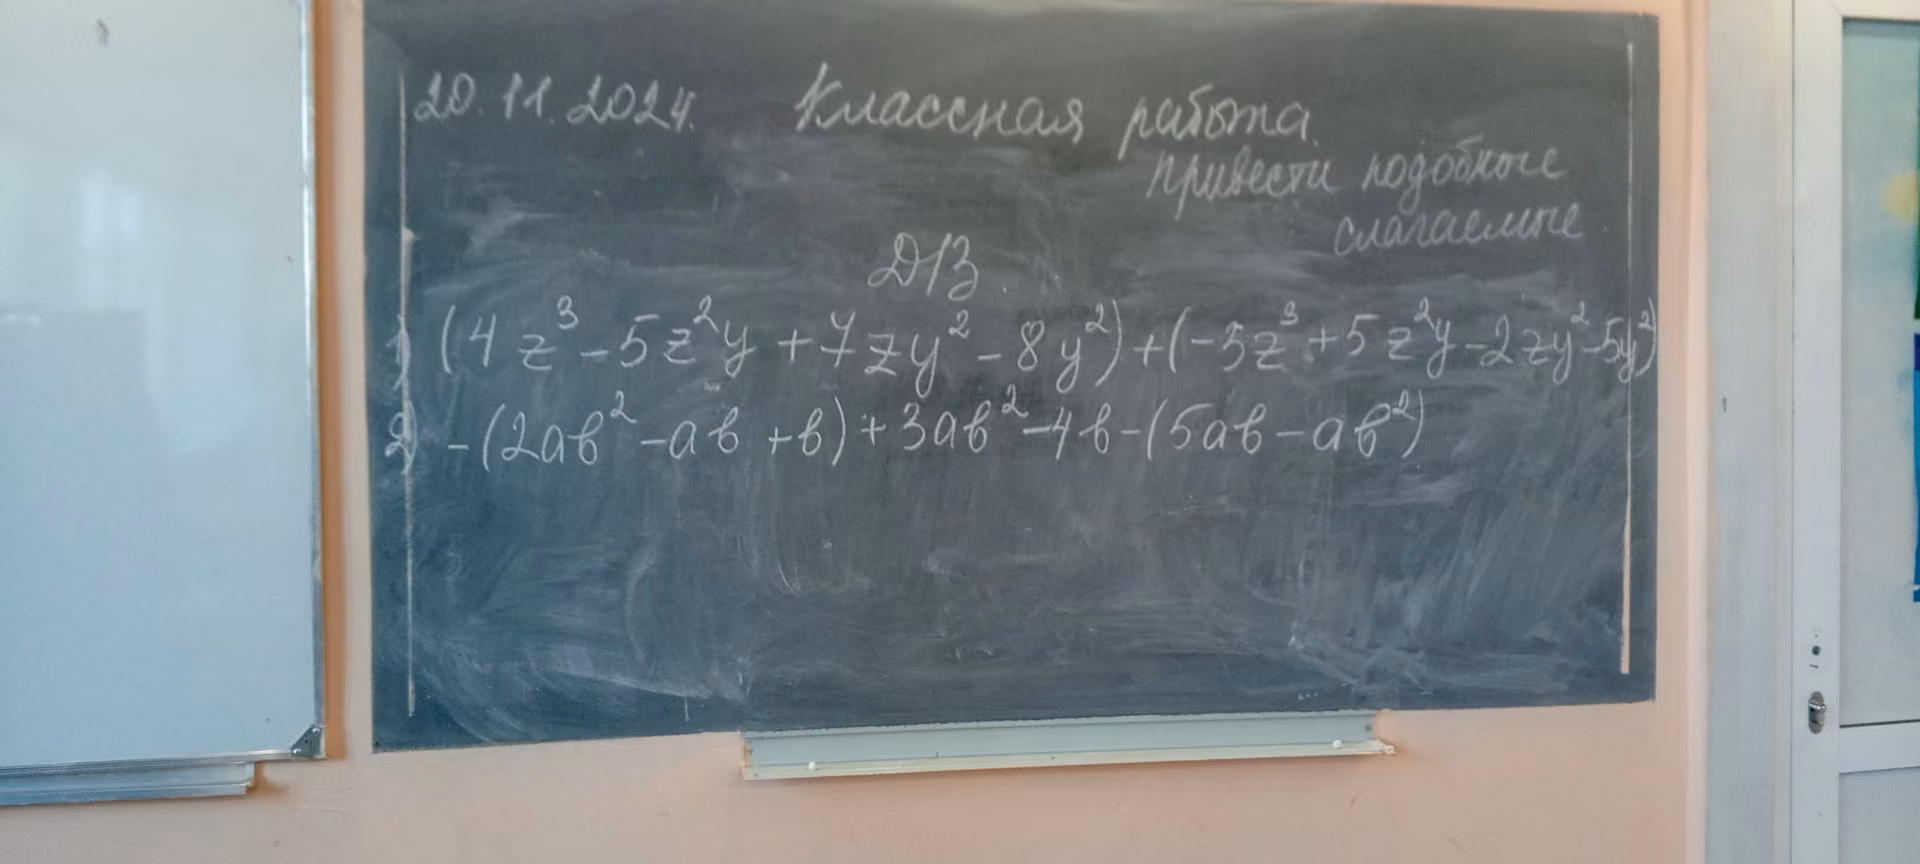 20.11.2024. Классная работа.
Привести подобные
слагаемые
Д/З.
1) (4z³-5z²y+7zy²-8y²)+(-3z³+5z²y-2zy²-5y²)
2) -(2ab²-ab+b)+3ab²-4b-(5ab-ab²)